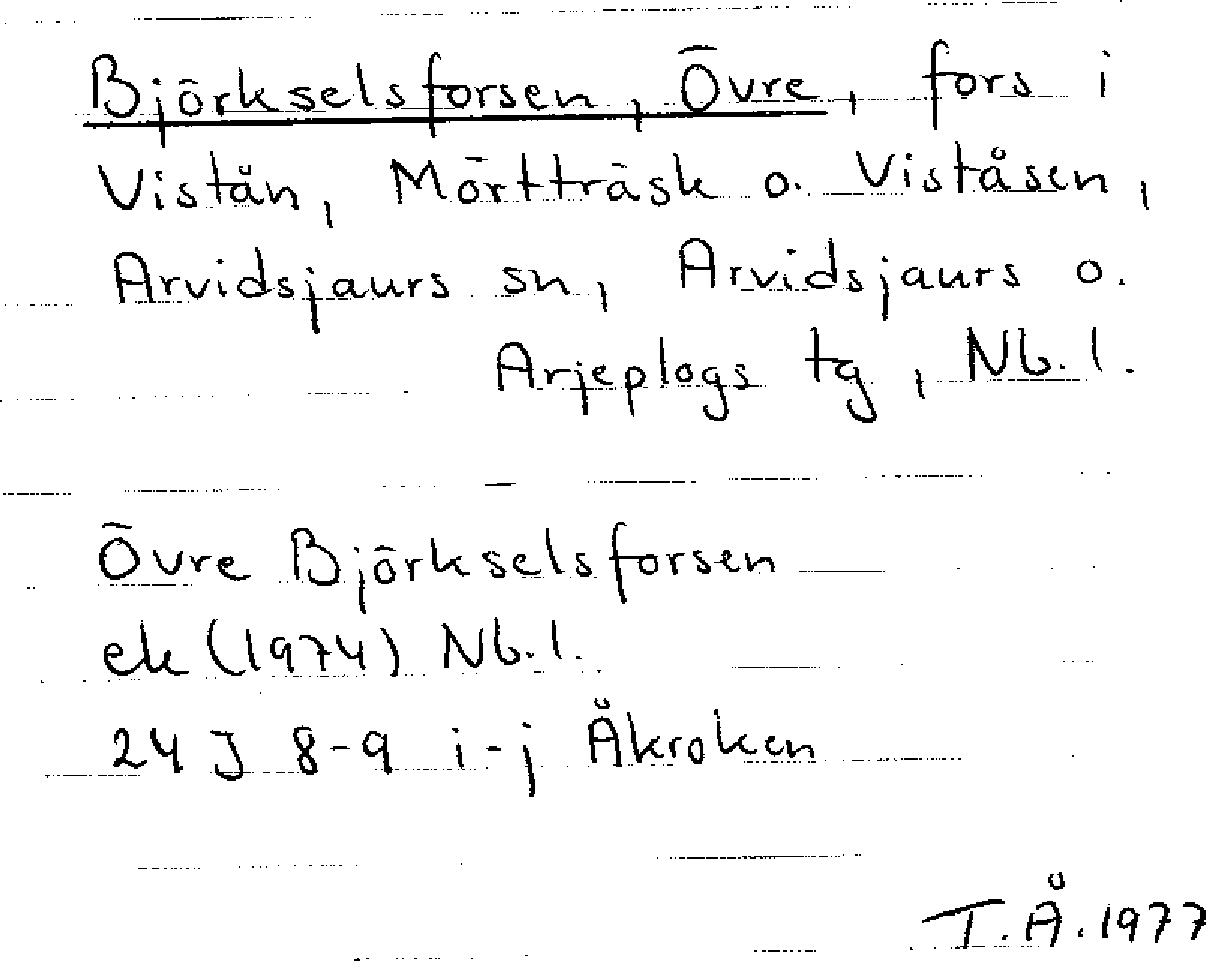 Björkselsforsen, Övre, fors i
Vistån, Mörtträsk o. Viståsen,
Arvidsjaurs sn, Arvidsjaurs o.
Arjeplogs tg, Nb. l.
Övre Björkselsforsen
ek (1974) Nb. l.
24 J 8-9 i-j Åkroken
T. Å. 1977